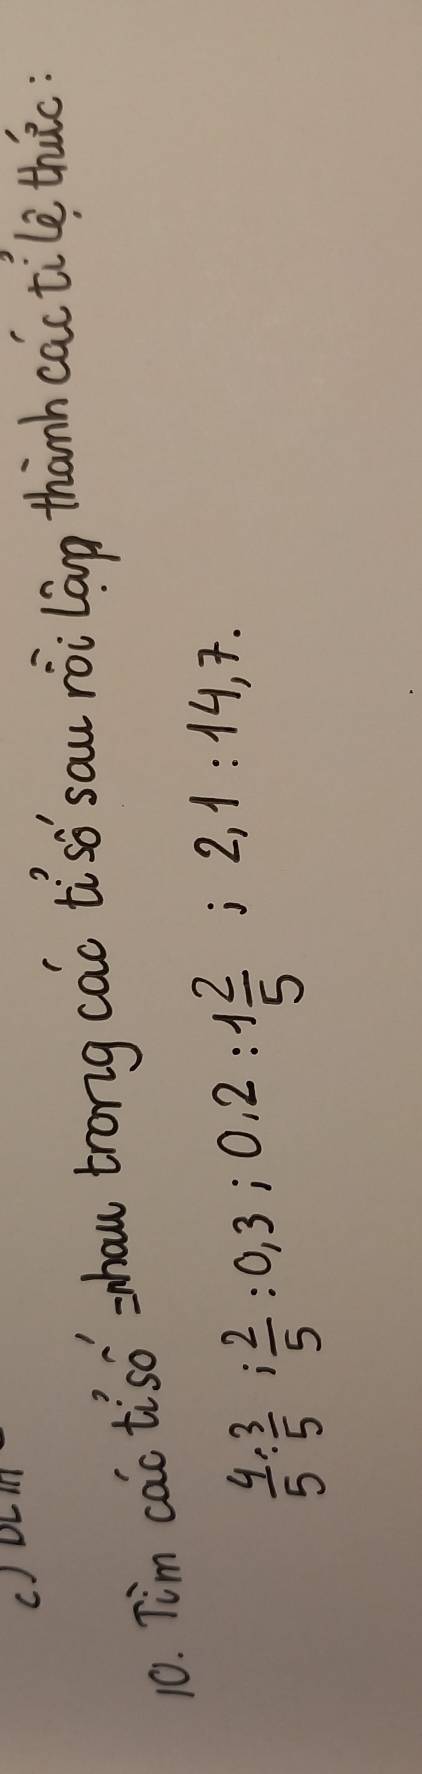 10. Tìm các tỉ số = nhau trong các tỉ số sau rồi lập thành các tỉ lệ thức:
4/5 : 3/5 ; 2/5 : 0,3 ; 0,2 : 1 2/5 ; 2,1 : 14,7.